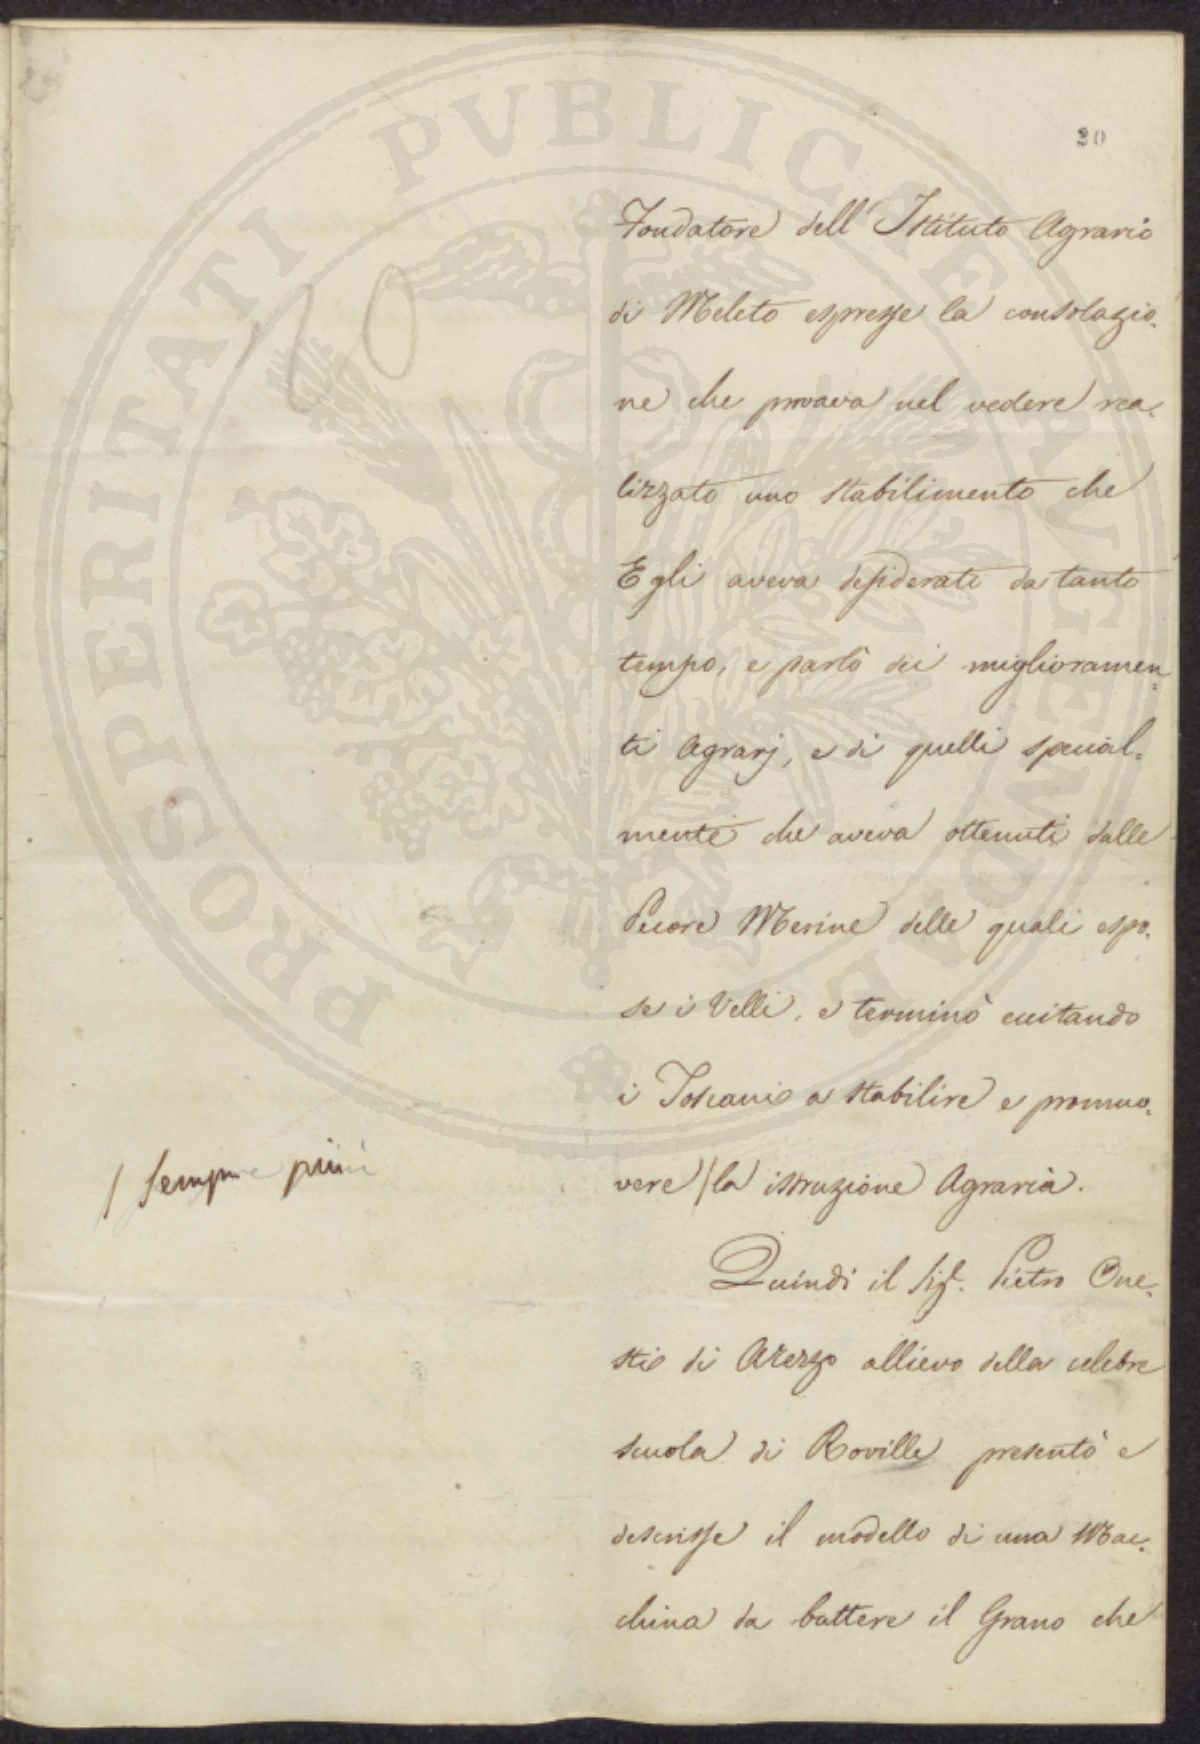 20
Fondatore dell'Istituto Agrario
di Meleto espresse la consolazio-
ne che provava nel vedere rea-
lizzato uno stabilimento che
Egli aveva desiderato da tanto
tempo, e parlò dei miglioramen-
ti Agrarj, e di quelli special-
mente che aveva ottenuti dalle
Pecore Merine delle quali espo-
se i Velli, e terminò eccitando
i Toscani a stabilire e promuo-
/ sempre più
vere / la istruzione Agraria.
Quindi il Sig. Pietro One-
sti di Arezzo allievo della celebre
scuola di Roville presentò e
descrisse il modello di una Mac-
china da battere il Grano che
PROSPERITATI PUBLICAE AUGENDAE